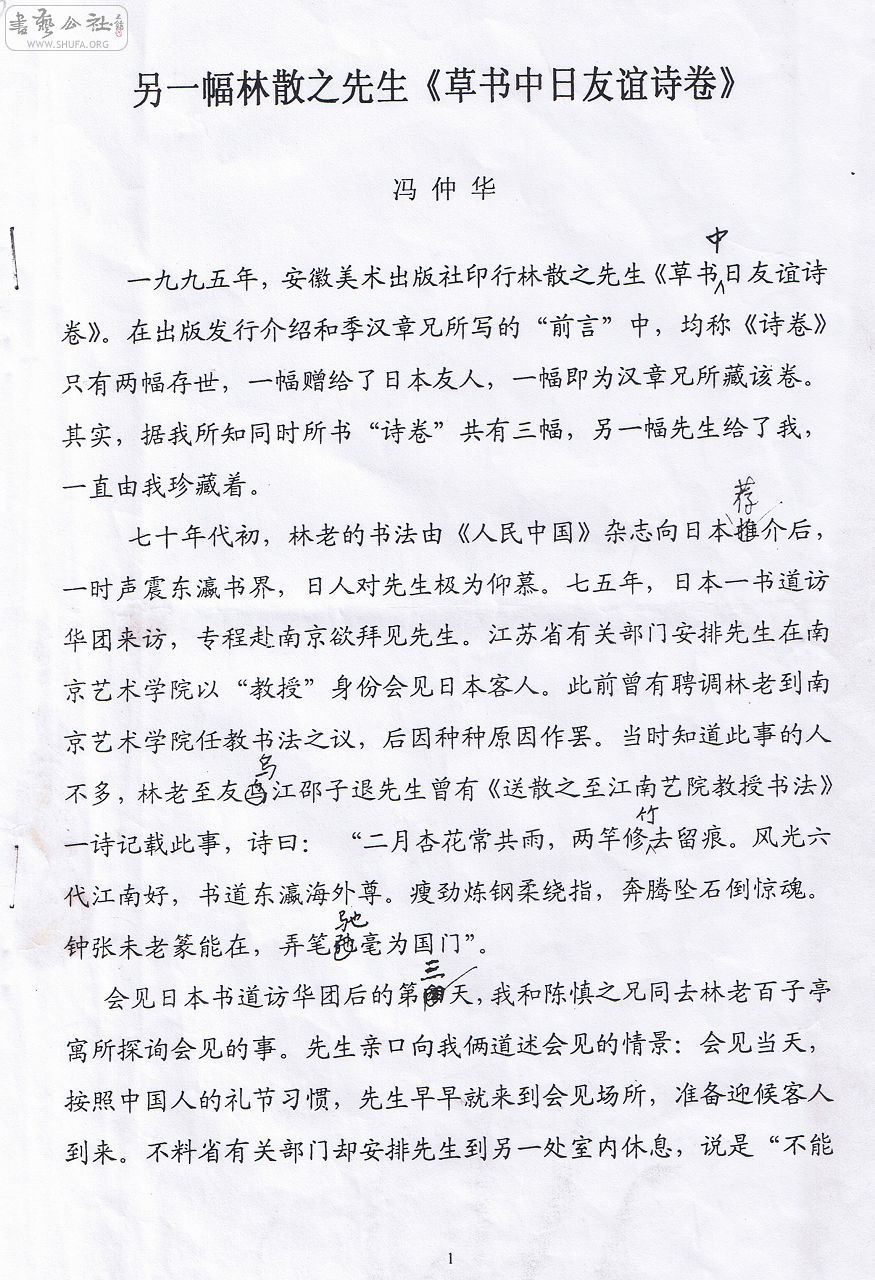 書藝公社
WWW.SHUFA.ORG
另一幅林散之先生《草书中日友谊诗卷》
冯仲华
中
一九九五年，安徽美术出版社印行林散之先生《草书日友谊诗
卷》。在出版发行介绍和季汉章兄所写的“前言”中，均称《诗卷》
只有两幅存世，一幅赠给了日本友人，一幅即为汉章兄所藏该卷。
其实，据我所知同时所书“诗卷”共有三幅，另一幅先生给了我，
一直由我珍藏着。
荐
七十年代初，林老的书法由《人民中国》杂志向日本推介后，
一时声震东瀛书界，日人对先生极为仰慕。七五年，日本一书道访
华团来访，专程赴南京欲拜见先生。江苏省有关部门安排先生在南
京艺术学院以“教授”身份会见日本客人。此前曾有聘调林老到南
京艺术学院任教书法之议，后因种种原因作罢。当时知道此事的人
乌
不多，林老至友江邵子退先生曾有《送散之至江南艺院教授书法》
竹
一诗记载此事，诗曰：“二月杏花常共雨，两竿修去留痕。风光六
代江南好，书道东瀛海外尊。瘦劲炼钢柔绕指，奔腾坠石倒惊魂。
驰
钟张未老篆能在，弄笔毫为国门”。
三
会见日本书道访华团后的第天，我和陈慎之兄同去林老百子亭
寓所探询会见的事。先生亲口向我俩道述会见的情景：会见当天，
按照中国人的礼节习惯，先生早早就来到会见场所，准备迎候客人
到来。不料省有关部门却安排先生到另一处室内休息，说是“不能
1